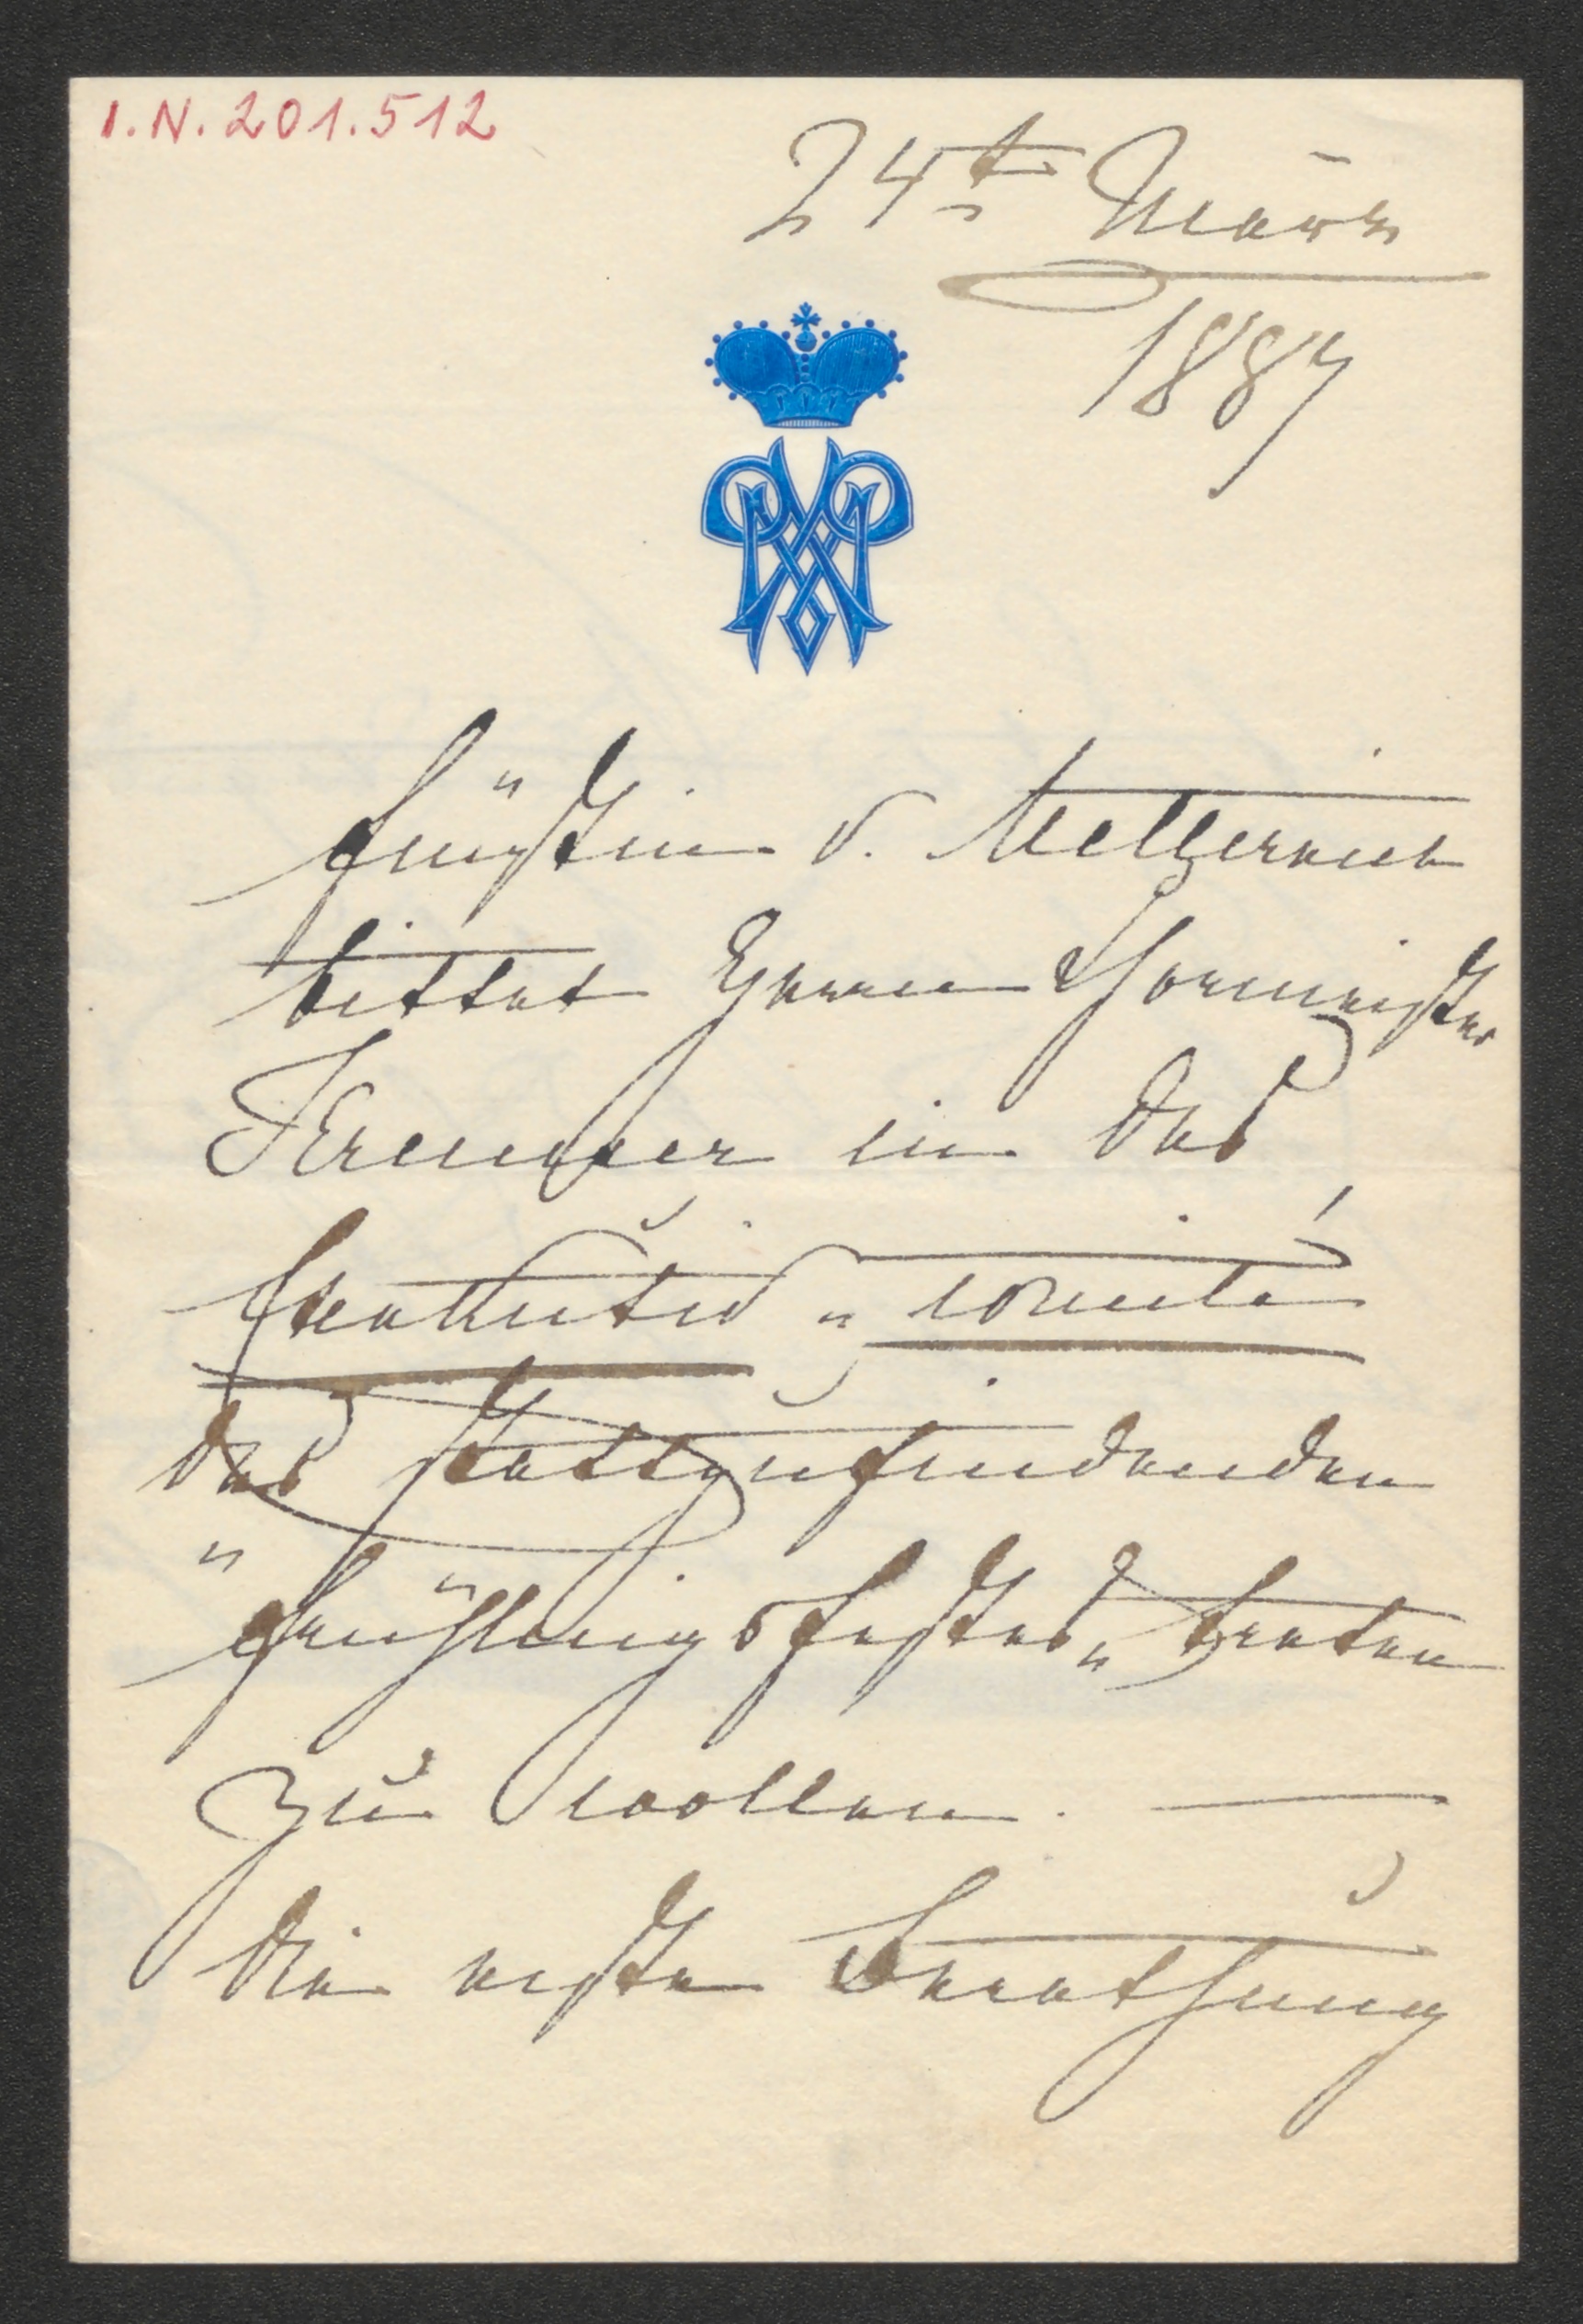 I.N. 201.512
24te März
1887
Fürstin v. Metternich
bittet Herrn Chormeister
Kremser in das
Exekutiv „ comité
des stattzufindenden
"Frühlingsfestes„ treten
zu wollen. —
Die erste Berathung